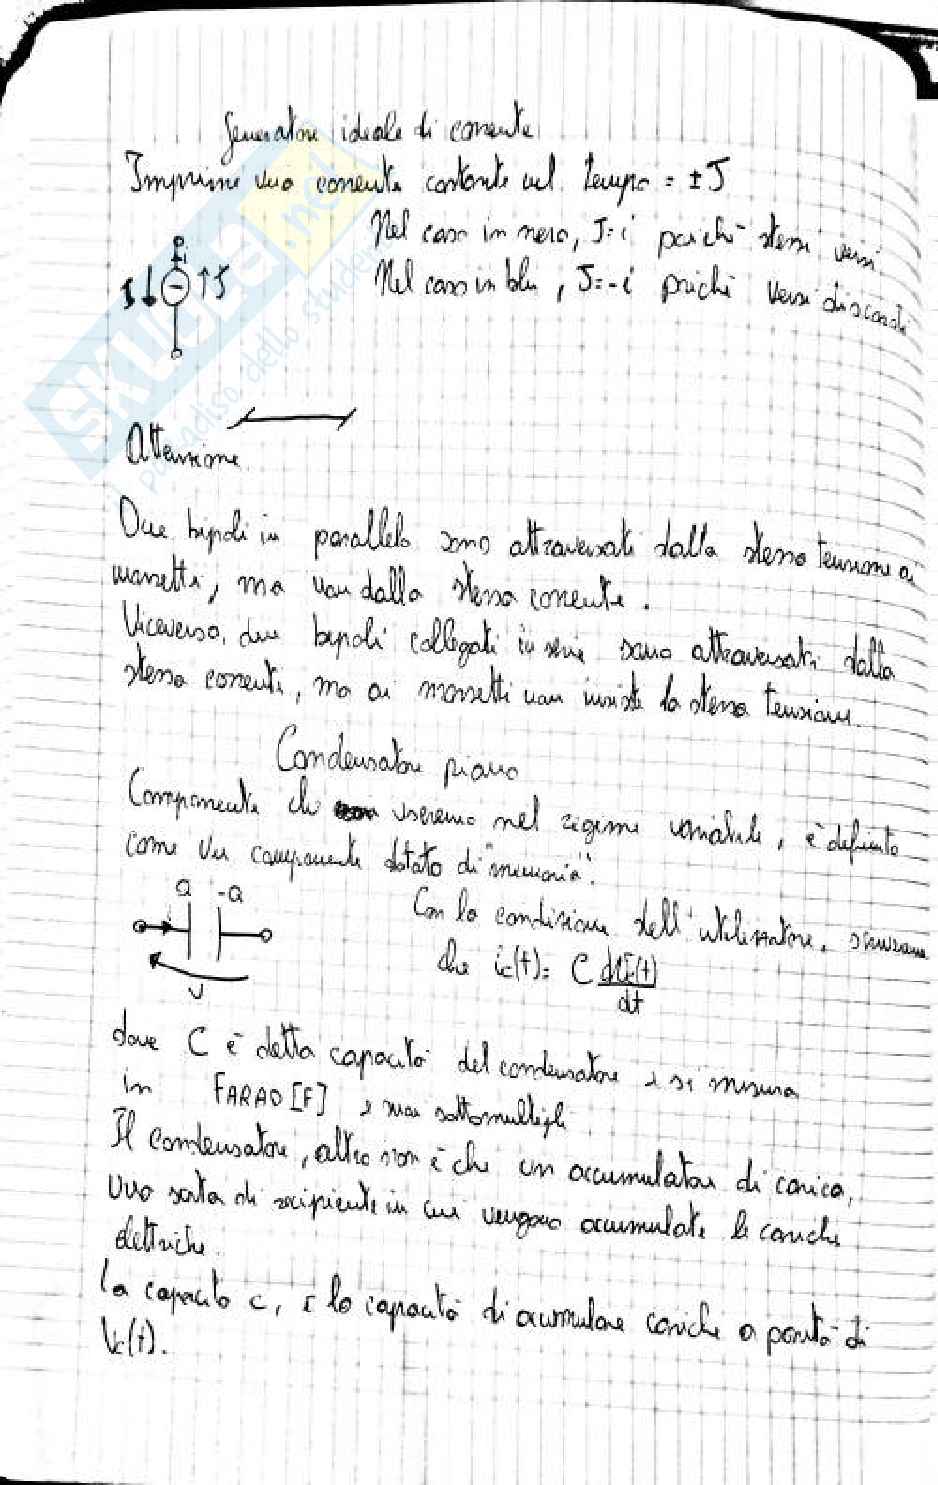 Generatore ideale di corrente
Imprime una corrente costante nel tempo = ± J
Nel caso in nero, J=i poiché stessi versi
Nel caso in blu, J=-i poiché versi discordi
J i J
Attenzione
Due bipoli in parallelo sono attraversati dalla stessa tensione ai
morsetti, ma non dalla stessa corrente.
Viceversa, due bipoli collegati in serie sono attraversati dalla
stessa corrente, ma ai morsetti non insiste la stessa tensione.
Condensatore piano
Componente che useremo nel regime variabile, è definito
come un componente dotato di "memoria".
Q -Q
i
V
Con la condizione dell'utilizzatore,
che ic(t)= C dVc(t)
dt
dove C è detta capacità del condensatore e si misura
in FARAD [F] e suoi sottomultipli
Il condensatore, altro non è che un accumulatore di carica,
una sorta di recipiente in cui vengono accumulate le cariche
elettriche.
La capacità C, è la capacità di accumulare cariche a parità di
Vc(t).
SKUOLA.net
paradiso dello studente